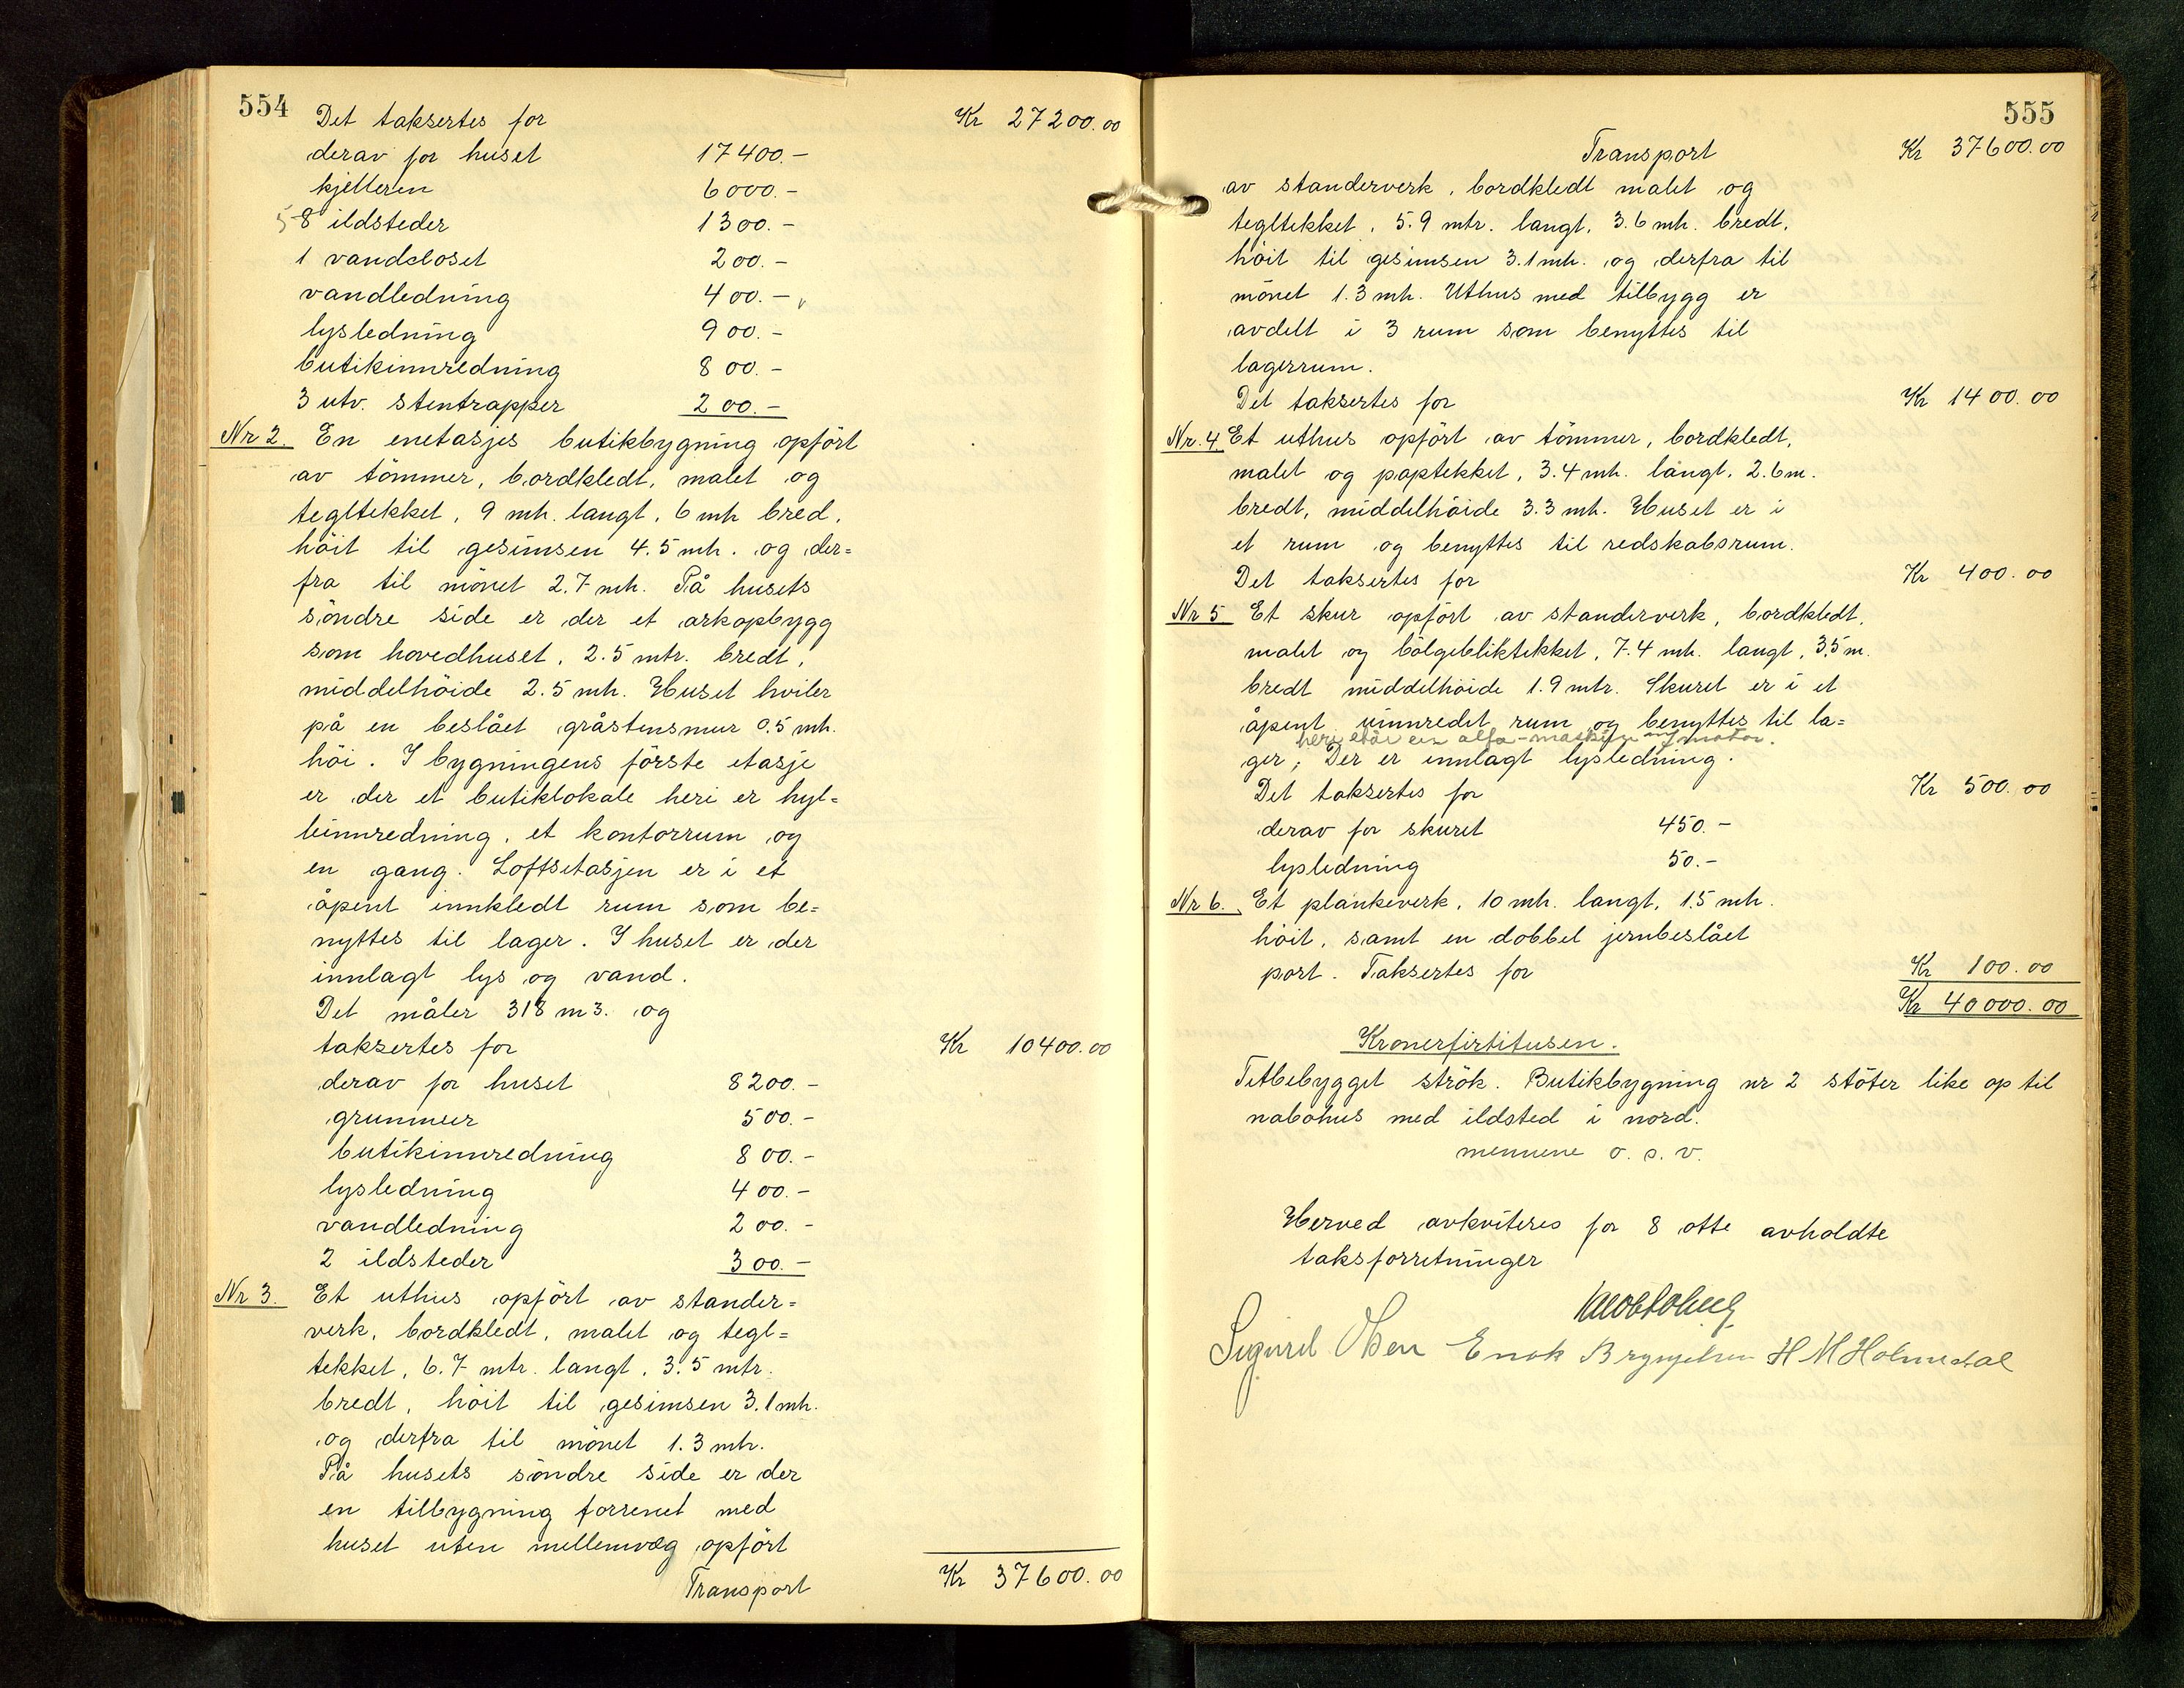 554
Det taksertes for Kr 27200.00
derav for huset 17400.-
kjelleren 6000.-
5 8 ildsteder 1300.-
1 vandcloset 200.-
vandledning 400.-
lysledning 900.-
butikinnredning 800.-
3 utv. stentrapper 200.-
Nr 2. En enetasjes butikbygning opført
av tømmer, bordkledt, malet og
tegltekket, 9 mtr. langt, 6 mtr bred,
høit til gesimsen 4.5 mtr. og der=
fra til mønet 2.7 mtr. På husets
søndre side er der et arkopbygg
som hovedhuset, 2.5 mtr. bredt,
middelhøide 2.5 mtr. Huset hviler
på en beslået gråstensmur 0.5 mtr.
høi. I bygningens første etasje
er der et butiklokale heri er hyl=
leinnredning, et kontorrum og
en gang. Loftsetasjen er i et
åpent innkledt rum som be=
nyttes til lager. I huset er der
innlagt lys og vand.
Det måler 318 m3. og
taksertes for Kr 10400.00
derav for huset 8200.-
grunmuer 500.-
butikinnredning 800.-
lysledning 400.-
vandledning 200.-
2 ildsteder 300.-
Nr 3. Et uthus opført av stander=
verk, bordkledt, malet og tegl=
tekket, 6.7 mtr. langt, 3.5 mtr.
bredt, høit til gesimsen 3.1 mtr.
og derfra til mønet 1.3 mtr.
På husets søndre side er der
en tilbygning forrenet med
huset uten mellemvæg opført
Transport Kr 37600.00
555
Transport Kr 37600.00
av standerverk, bordkledt malet og
tegltekket, 5.9 mtr. langt, 3.6 mtr. bredt,
høit til gesimsen 3.1 mtr. og derfra til
mønet 1.3 mtr. Uthus med tilbygg er
avdelt i 3 rum som benyttes til
lagerrum.
Det taksertes for Kr 1400.00
Nr. 4. Et uthus opført av tømmer, bordkledt,
malet og paptekket, 3.4 mtr. langt, 2.6 m.
bredt, middelhøide 3.3 mtr. Huset er i
et rum og benyttes til redskabsrum.
Det taksertes for Kr 400.00
Nr 5 Et skur opført av standerverk, bordkledt,
malet og bølgebliktekket, 7.4 mtr. langt, 3.5 m.
bredt middelhøide 1.9 mtr. Skuret er i et
åpent uinnredet rum og benyttes til la=
heri står en alfa-maskin motor.
ger, Der er innlagt lysledning.
Det taksertes for Kr 500.00
derav for skuret 450.-
lysledning 50.-
Nr 6. Et plankeverk, 10 mtr. langt, 1.5 mtr.
høit, samt en dobbel jernbeslået
port. Taksertes for Kr 100.00
Kr 40000.00
Kronerfirtitusen.
Tetbebygget strøk. Butikbygning nr 2 støter like op til
nabohus med ildsted i nord.
mennene o. s. v.
Herved avkviteres for 8 otte avholdte
taksforretninger
Sigurd Olsen Enok Brynjelsen H M Holmedal